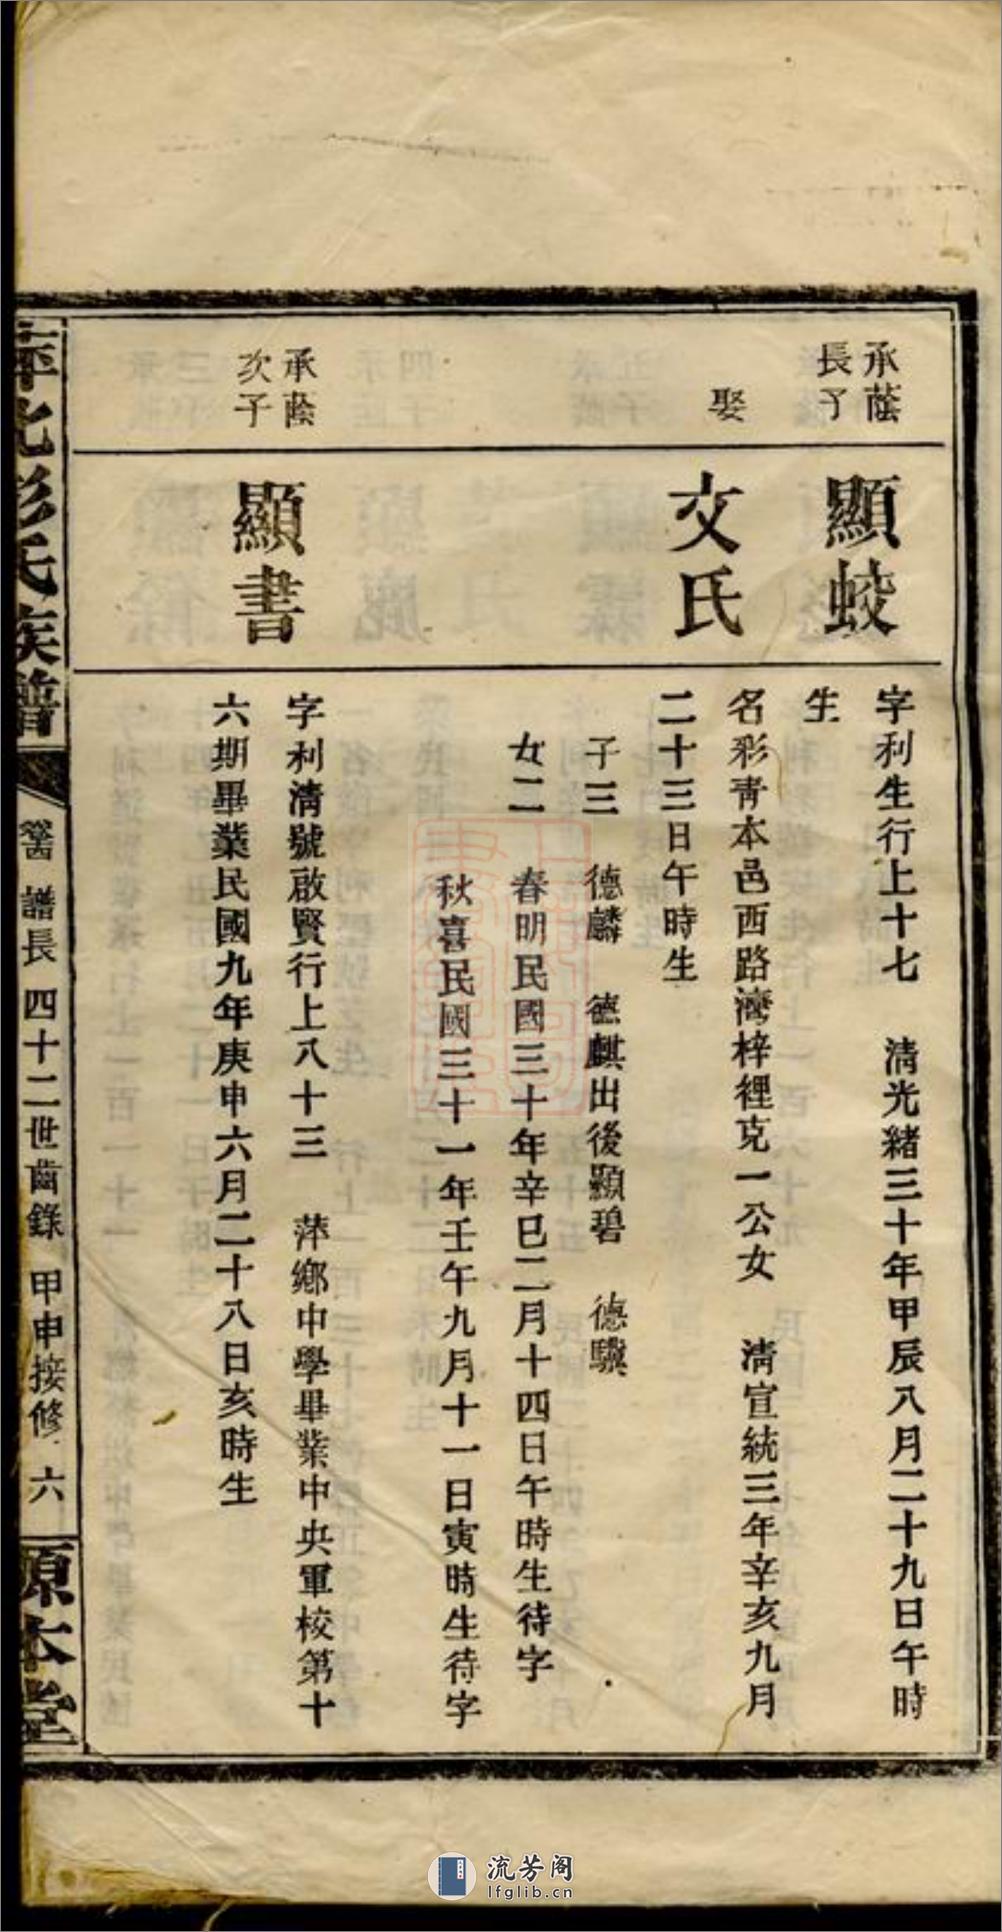 承蔭
長子
顯蛟
字利生行上十七　清光緒三十年甲辰八月二十九日午時
生
娶
文氏
名彩青本邑西路灣梓裡克一公女　清宣統三年辛亥九月
二十三日午時生
子三　德麟　德麒出後顯碧　德驥
女二　春明民國三十年辛巳二月十四日午時生待字
秋喜民國三十一年壬午九月十一日寅時生待字
承蔭
次子
顯書
字利清號啟賢行上八十三　萍鄉中學畢業中央軍校第十
六期畢業民國九年庚申六月二十八日亥時生
萍北彭氏族譜
譜長　四十二世齒錄　甲申接修　六
源本堂
流芳阁
lfglib.cn